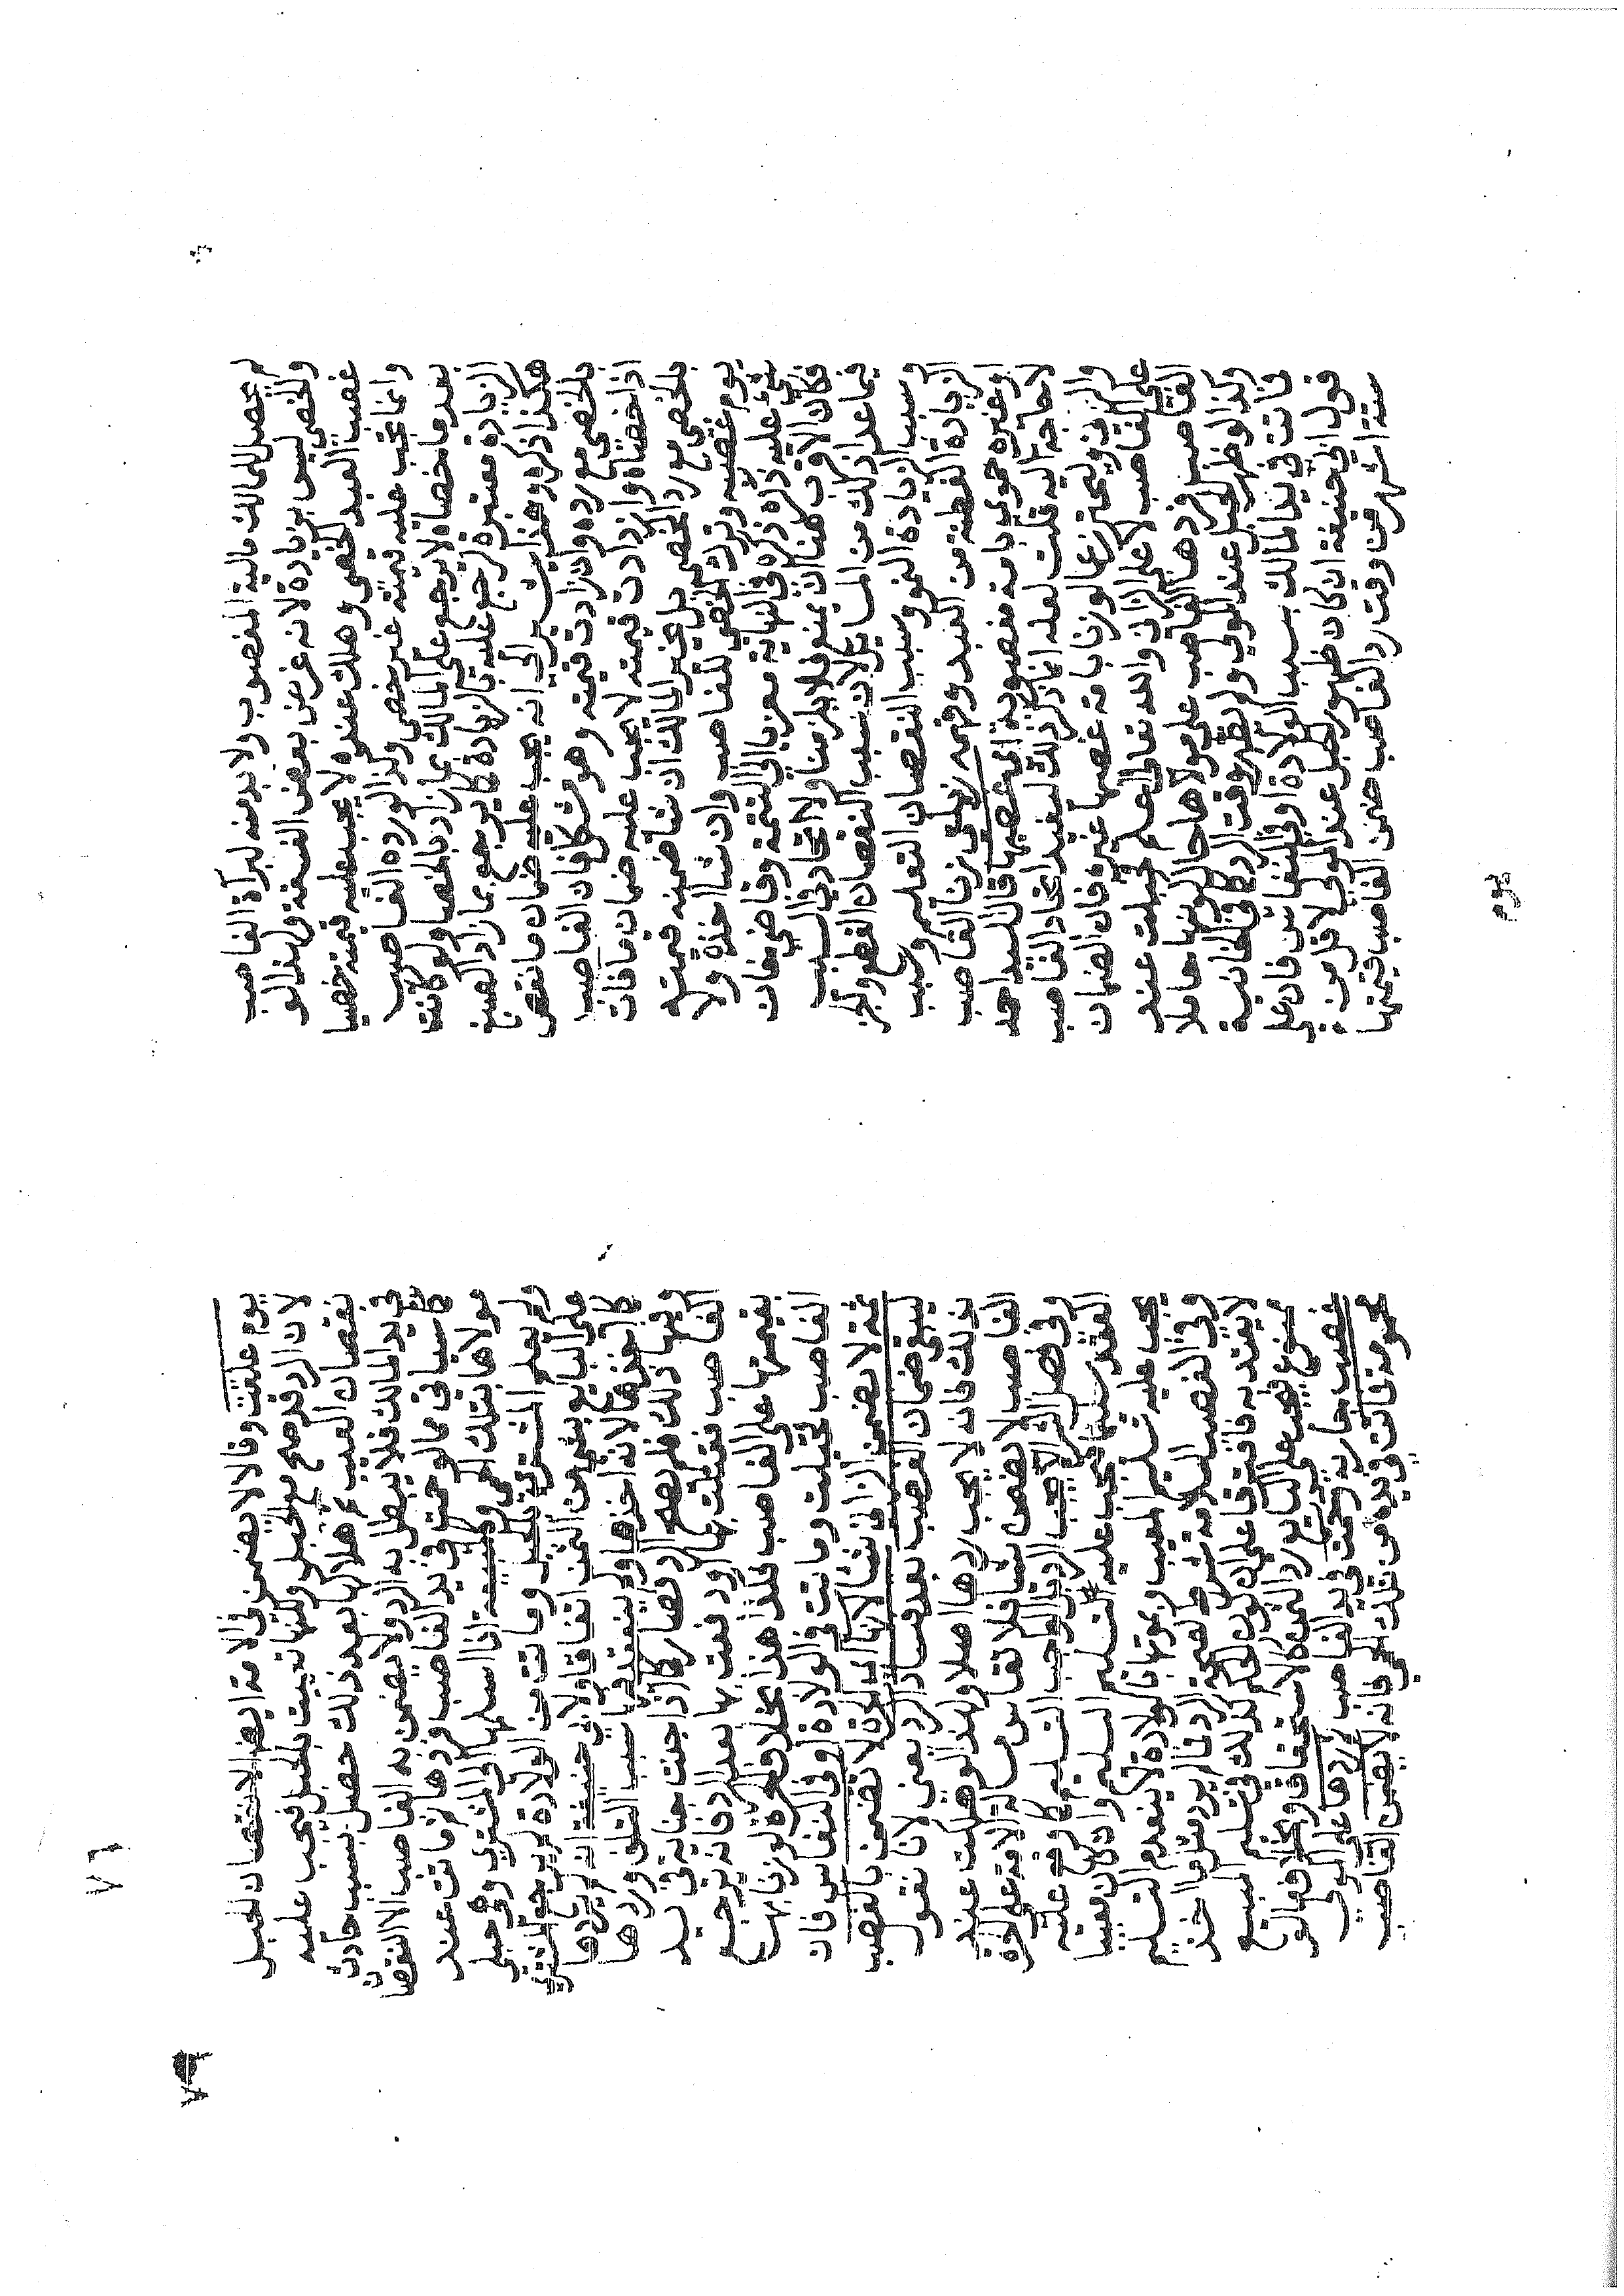 لم يحصل للمالك مالية المغصوب ولا بد منه لبرآة الغاصب
والخصي ليس بزيادة لانه غرض بعض الفسقة ولهذا لو
غصب العبد الخصي وهلك عنده لا يجب عليه قيمته خصيا
وانما يجب عليه قيمته غير خصي وكذا لو رده الغاصب
بعد ما خصاه لا يرجع على المالك بما زاد بالخصا ولو كانت
الزيادة معتبرة لرجع عليه بالزيادة كما يرجع بما زاد الصبغ
هكذا ذكروه وهذا يشير الى انه يجب عليه ضمان ما نقص
بالخصي مع رده وان زادت قيمته وهو مشكل فان الغاصب
اذا خصاه وازدادت قيمته لا يجب عليه ضمان ما فات
بالخصي مع رد الخصي بل يخير المالك ان شا ضمنه قيمته
يوم غصبه وترك الخصي للغاصب وان شا اخذه ولا
شئ عليه ذكره في النهاية معزيا الى التتمة وقاضي خان
فكان الاقرب هنا ان يمنع فلا يلزمنا ولا اتحاد في السبب
فيما عدا ذلك من المسايل لان سبب النقصان القطع والجز
وسبب الزيادة النمو وسبب النقصان التعليم وسبب
الزيادة الفطنة من العبد وفهمه زيلعي زنا الغاصب
او غيره حموي بامة مغصوبة اي غصبها قال السيد احمد
لا حاجة اليه قلت لعله انما ذكر ذلك ليفيد اتحاد الغاصب
والزاني وليحترز عما لو زنا بامة غصبها غيره فان الضمان
على الغاصب لا على الزاني والله تعالى اعلم فحبلت عند
الغاصب فردها الغاصب على مولاها حالو زنا حاملا
وكذا لو ظهر الحبل عند المولى ولم يظهر وقت الرد كما في الخانية
فماتت في يد المالك بسبب الولادة او بالنفاس فان على
قول ابي حنيفة ان كان ظهور الحبل عند المولى لاقل من
ستة اشهر من وقت رد الغاصب ضمن الغاصب قيمتها
يوم علقت وقالا لا يضمن في الامة ايضا الا نقصان الحبل
لان الرد قد صح مع الحبل ولكنها تعيبت بالحبل فيجب عليه
نقصان العيب ثم هلاكها بعد ذلك حصل بسبب حادث
في يد المالك فلا يبطل به الرد ولا يضمن به الغاصب الا النقصا
كما سياتي فيما لو حمت في يد الغاصب فردها ثم ماتت عند
مولاها بتلك الحمى اذا سلمها الى المشتري وهي حبلى
ولم يعلم المشتري بالحبل وماتت من الولادة لم يرجع المشتري
على البايع بشي من الثمن اتفاقا ولابي حنيفة انه لم يردها
كما اخذها لانه اخذها ولم ينعقد فيها سبب التلف وردها
وفيها ذلك فلم يصح الرد فصار كما اذا جنت جناية في يد
الغاصب فقتلت بها او دفعت بها بعد الرد فانه يرجع
بقيمتها على الغاصب فكذا هذا بخلاف الحرة لو زنا بها
الغاصب فحبلت وماتت في الولادة او في النفاس فان
ثمة لا يضمن الزاني شيا لانها اي الحرة لا تضمن بالغصب
ليبقى ضمان الغصب بعد فساد الرد يعني لانا نقول
بذلك فانه لا يجب ردها اصلا ولهذا لو هلكت عند
الغاصب لا يضمن شيا فلا تقاس مسالة الامة على الحرة
وفي فصل الشرا لا يجب الرد بل الواجب التسليم كما وقع عليه
العقد سليما فيجب عليه التسليم السليم وان كان معيبا
يجب عليه تسليم المعيب وبموتها بالولادة لا ينعدم التسليم
وفي الغصب السلامة شرط لصحة الرد فما لم يرد مثل ما اخذ
لا يعتد به فافترقا على ان نقول الحكم كذلك في تسليم المبيع
ممنوع فيجب على البايع رد الثمن كالاستحقاق وبخلاف ما لو
غصب جارية فحمت في يد الغاصب ثم ردها على المولى
محمومة فماتت في يده من تلك الحمى فانه لا يضمن الغاصب
٧٦